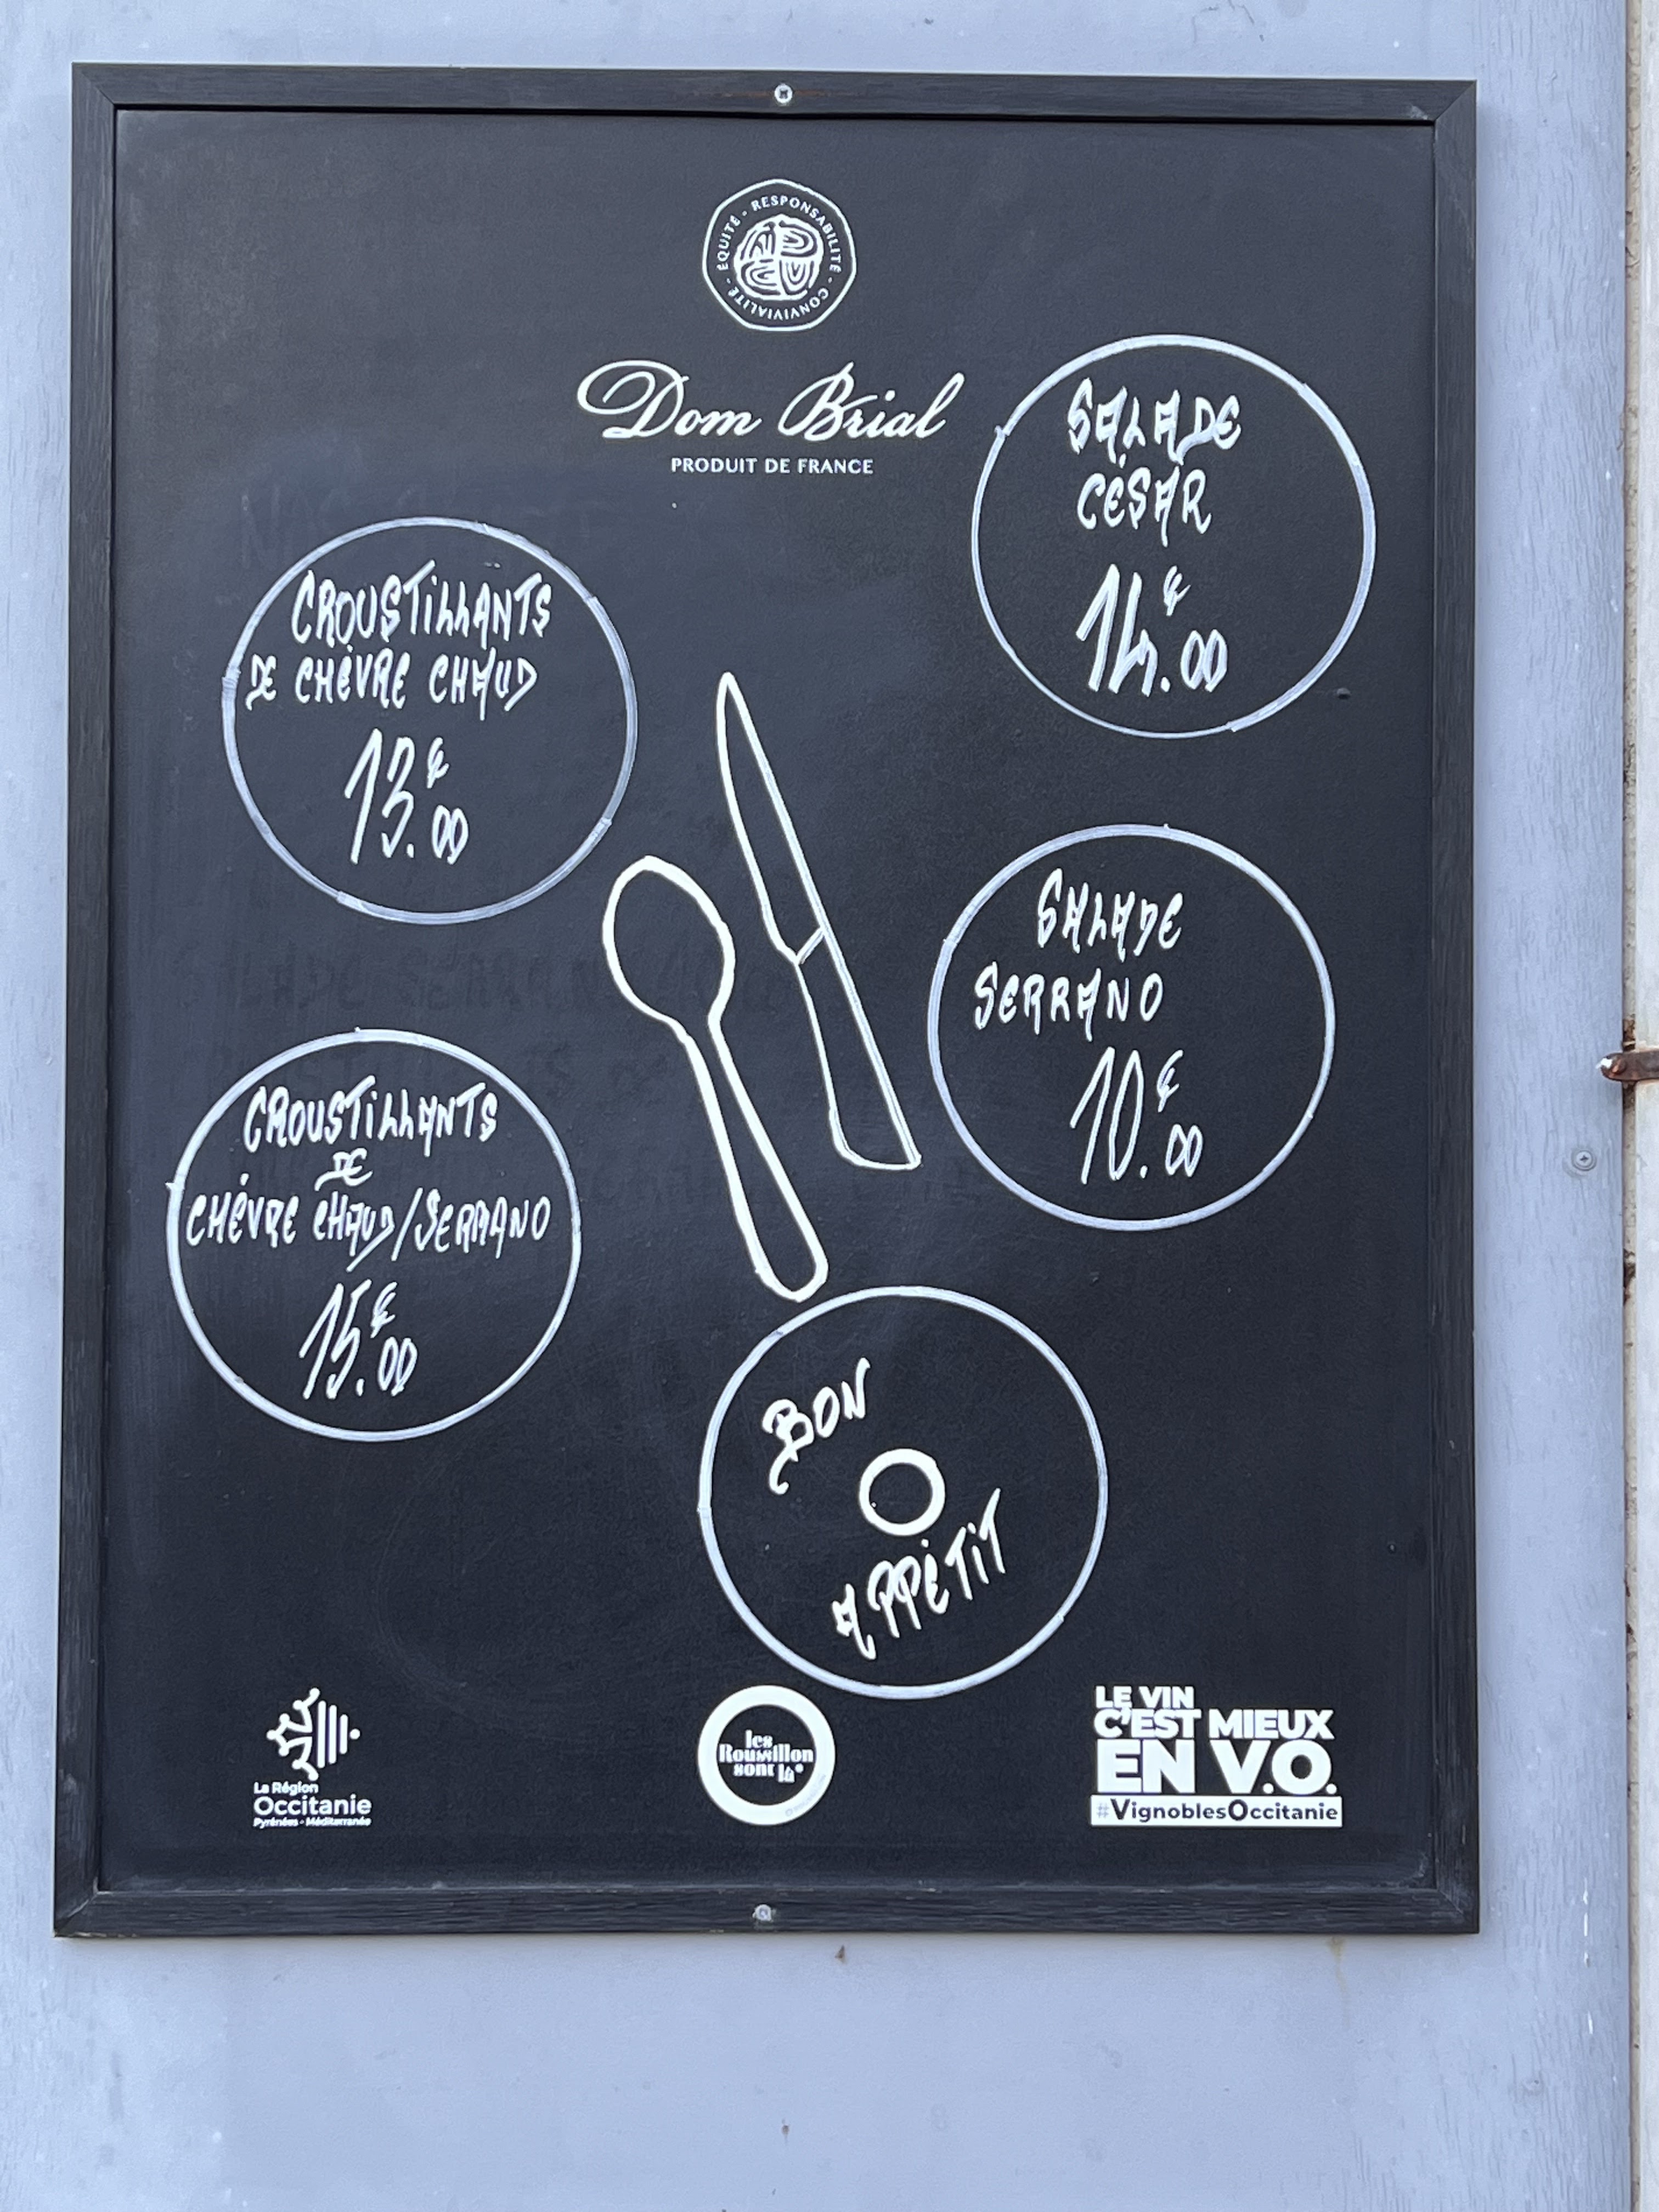 ÉQUITÉ - RESPONSABILITÉ - CONVIVIALITÉ -
Dom Brial
PRODUIT DE FRANCE
SALADE
CÉSAR
14€.00
CROUSTILLANTS
DE CHÈVRE CHAUD
13€.00
SALADE
SERRANO
10€.00
CROUSTILLANTS
DE
CHÈVRE CHAUD/SERRANO
15€.00
BON
APPÉTIT
La Région
Occitanie
Pyrénées - Méditerranée
les
Roussillon
sont là
LE VIN
C'EST MIEUX
EN V.O.
#VignoblesOccitanie